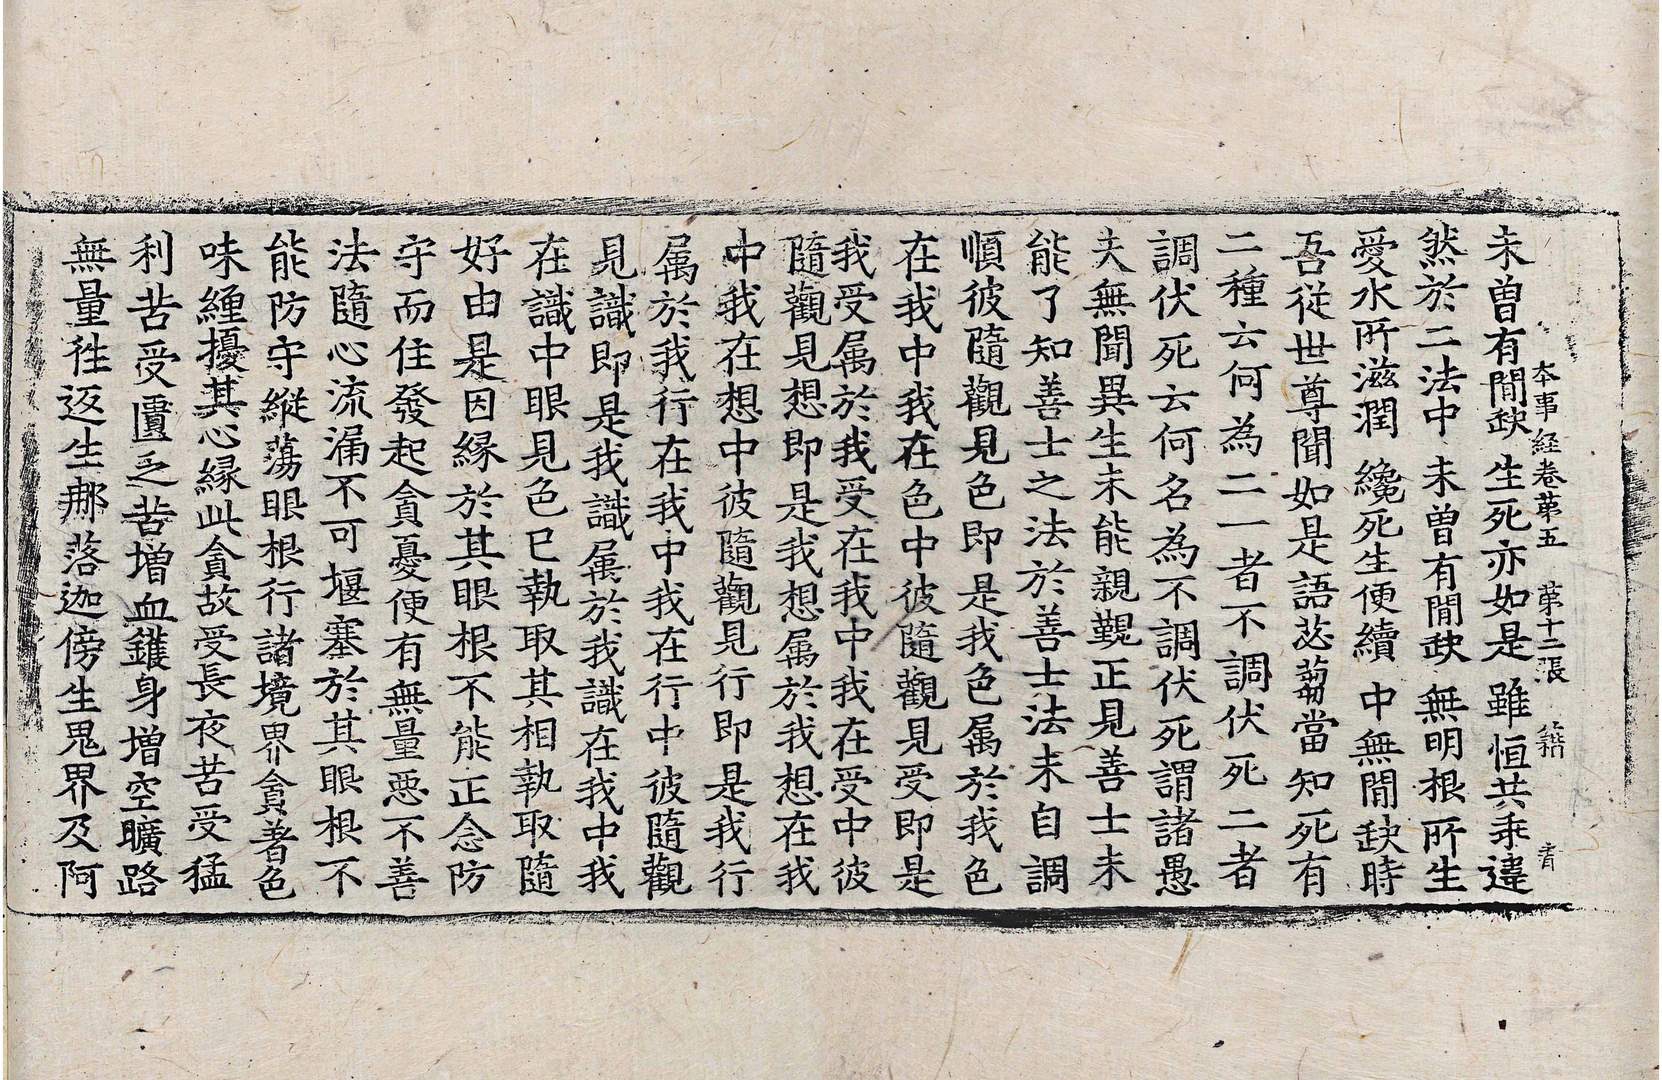 本事経卷苐五 第十二張 籍 青
未曽有閒𡙇生死亦如是雖恒共乖違
然於二法中未曽有閒𡙇無明根所生
愛水所滋潤纔死生便續中無閒𡙇時
吾従世尊聞如是語苾蒭當知死有
二種云何為二一者不調伏死二者
調伏死云何名為不調伏死謂諸愚
夫無聞異生未能親覲正見善士未
能了知善士之法於善士法未自調
順彼隨觀見色即是我色属於我色
在我中我在色中彼隨觀見受即是
我受属於我受在我中我在受中彼
隨觀見想即是我想属於我想在我
中我在想中彼隨觀見行即是我行
属於我行在我中我在行中彼隨觀
見識即是我識属於我識在我中我
在識中眼見色已執取其相執取隨
好由是因縁於其眼根不能正念防
守而住發起貪憂便有無量惡不善
法隨心流漏不可堰塞於其眼根不
能防守縱蕩眼根行諸境界貪著色
味纏擾其心縁此貪故受長夜苦受猛
利苦受匱乏苦増血鑊身増空曠路
無量徃返生㮈落迦傍生鬼界及阿